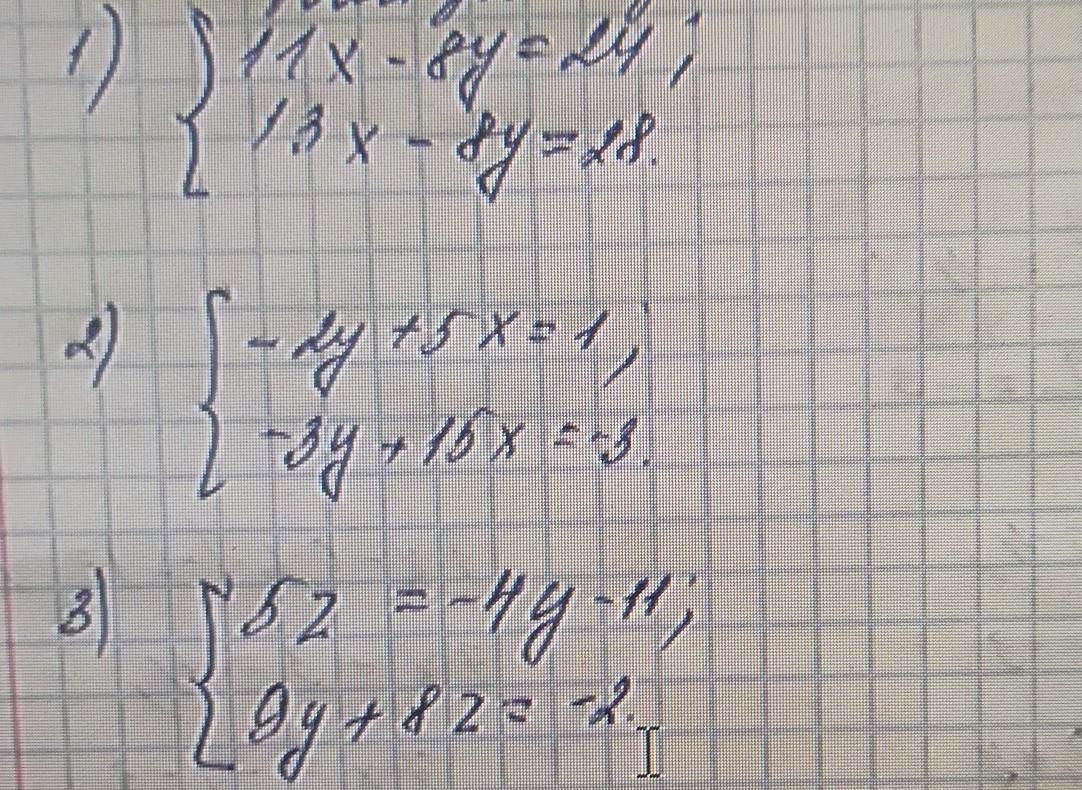 1) { 11x - 8y = 24;
13x - 8y = 28.
2) { -2y + 5x = 1;
-3y + 15x = -3.
3) { 5z = -4y - 11;
9y + 8z = -2.